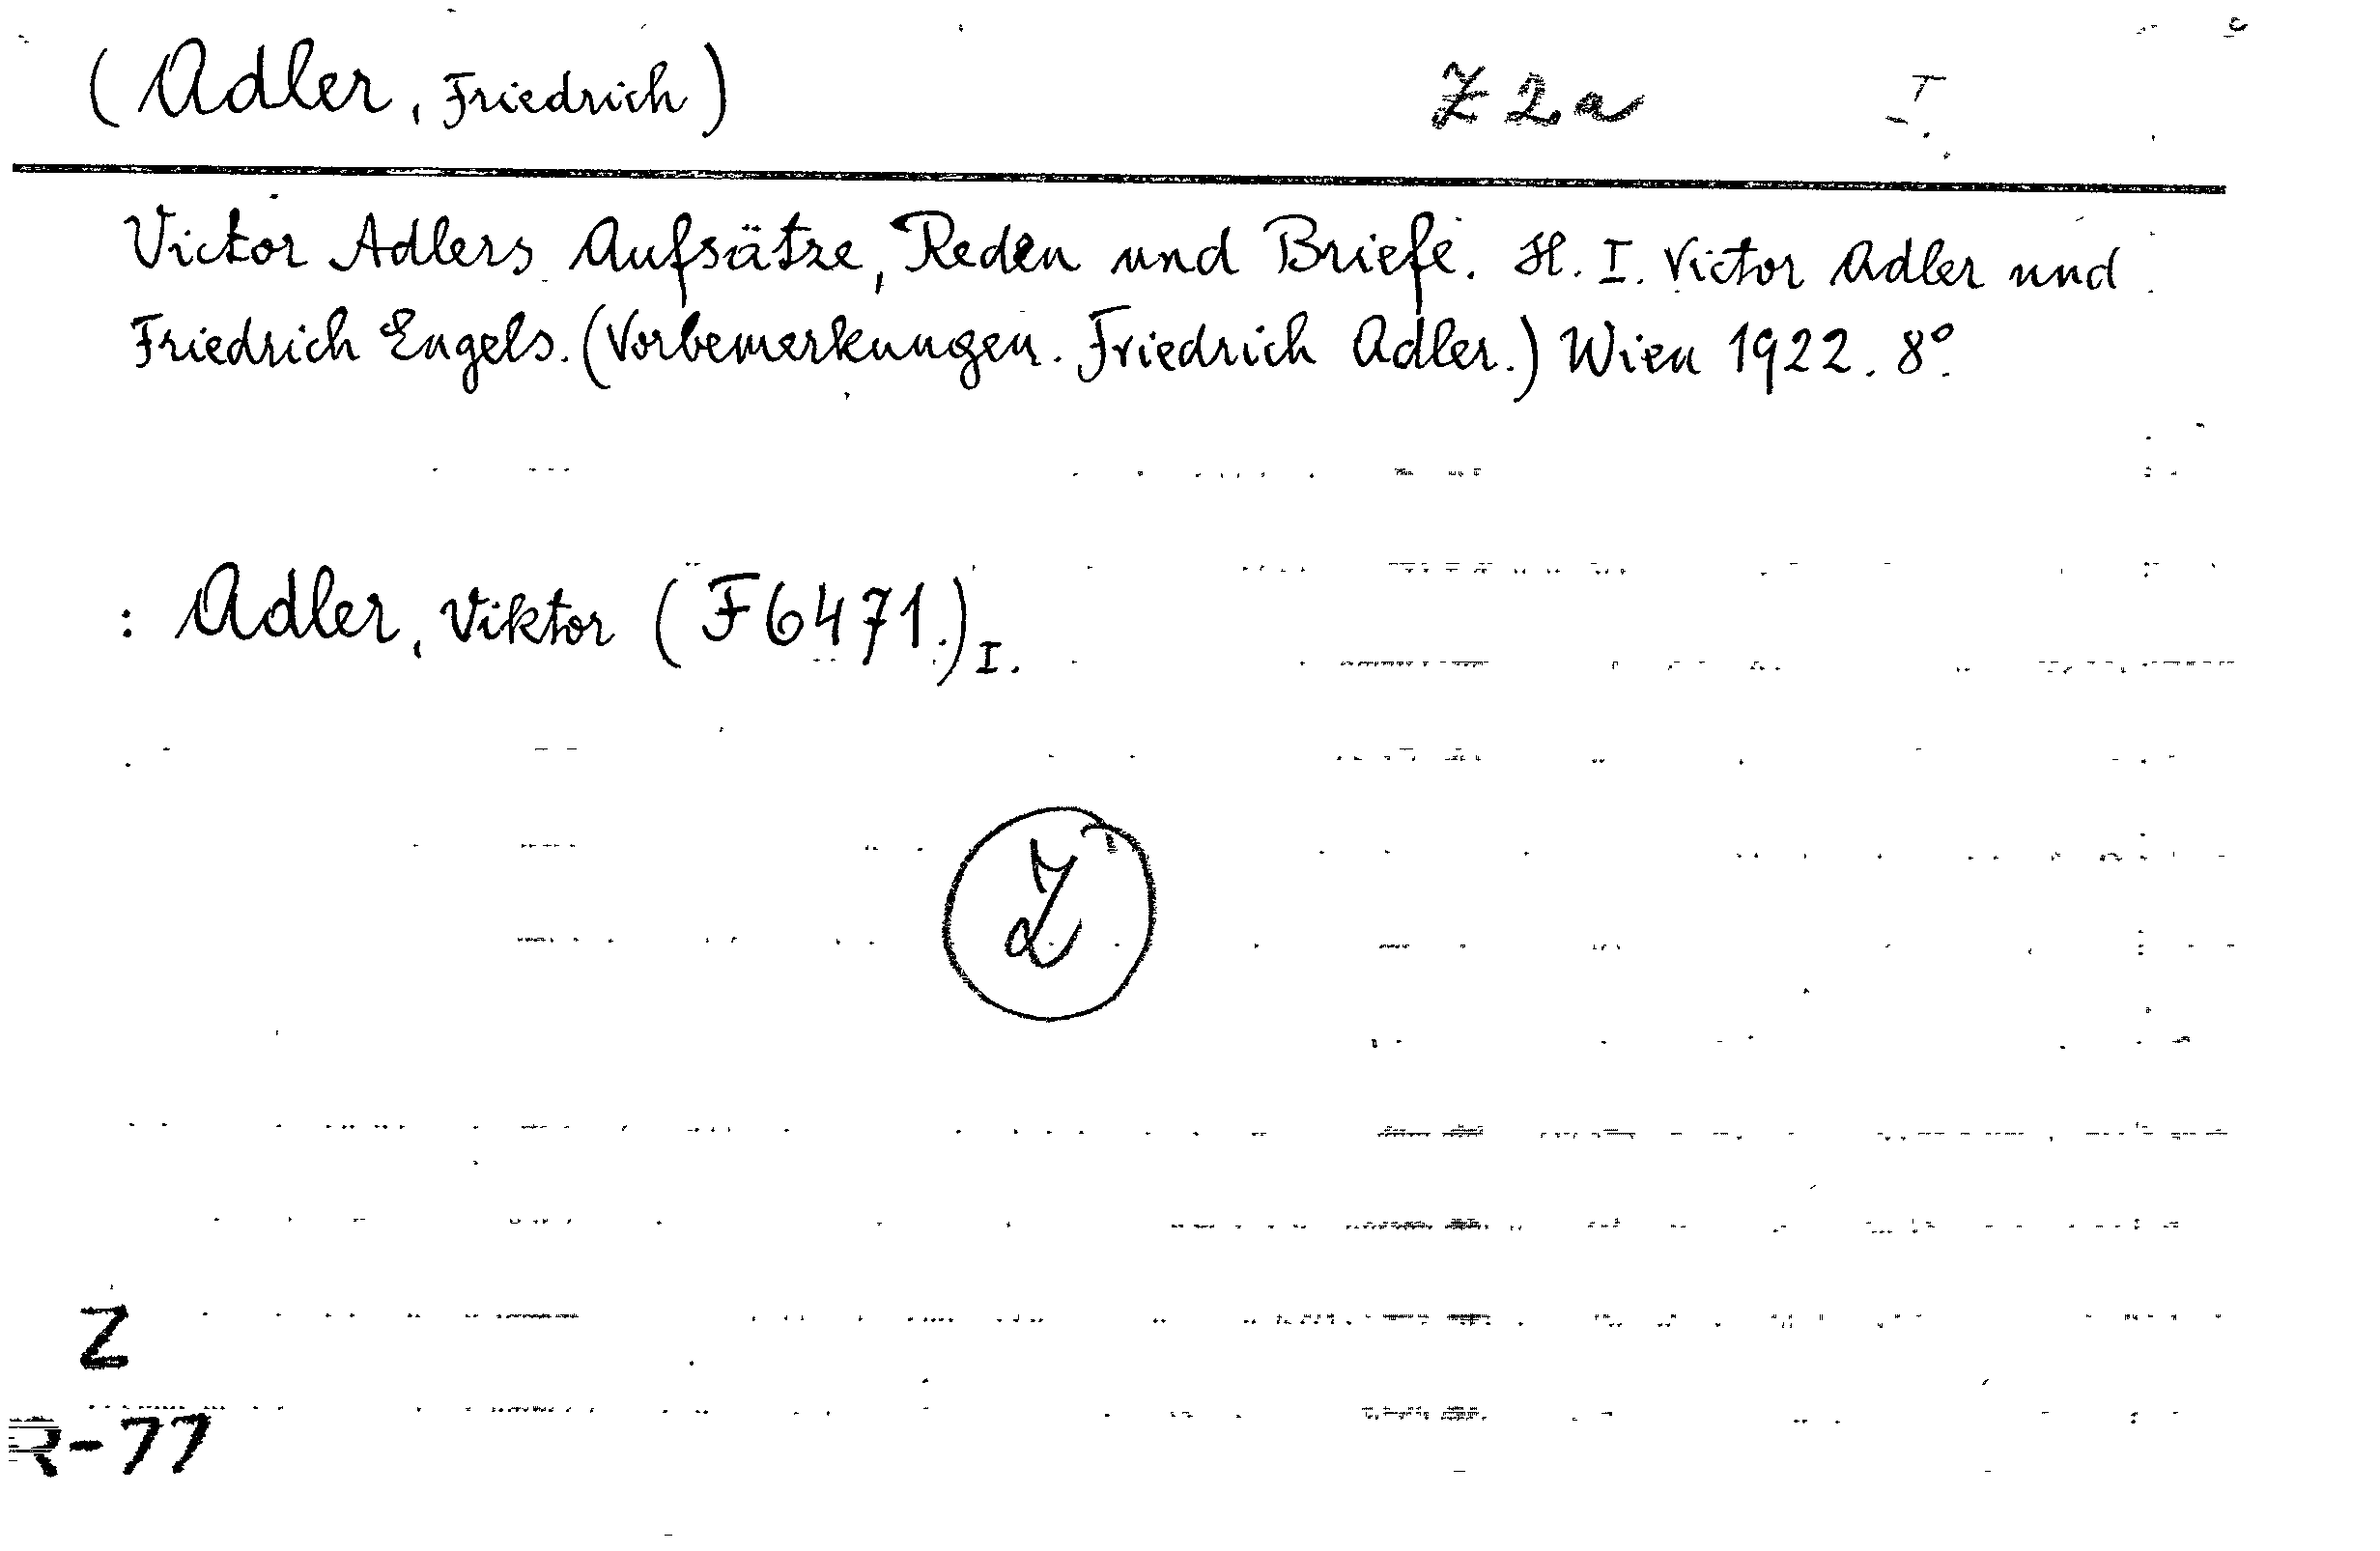 (Adler, Friedrich) Z 2a
Victor Adlers Aufsätze, Reden und Briefe. H. I. Victor Adler und
Friedrich Engels. (Vorbemerkungen. Friedrich Adler.) Wien 1922. 8°.
: Adler, Viktor (F6471.) I.
Z
Z
R-77